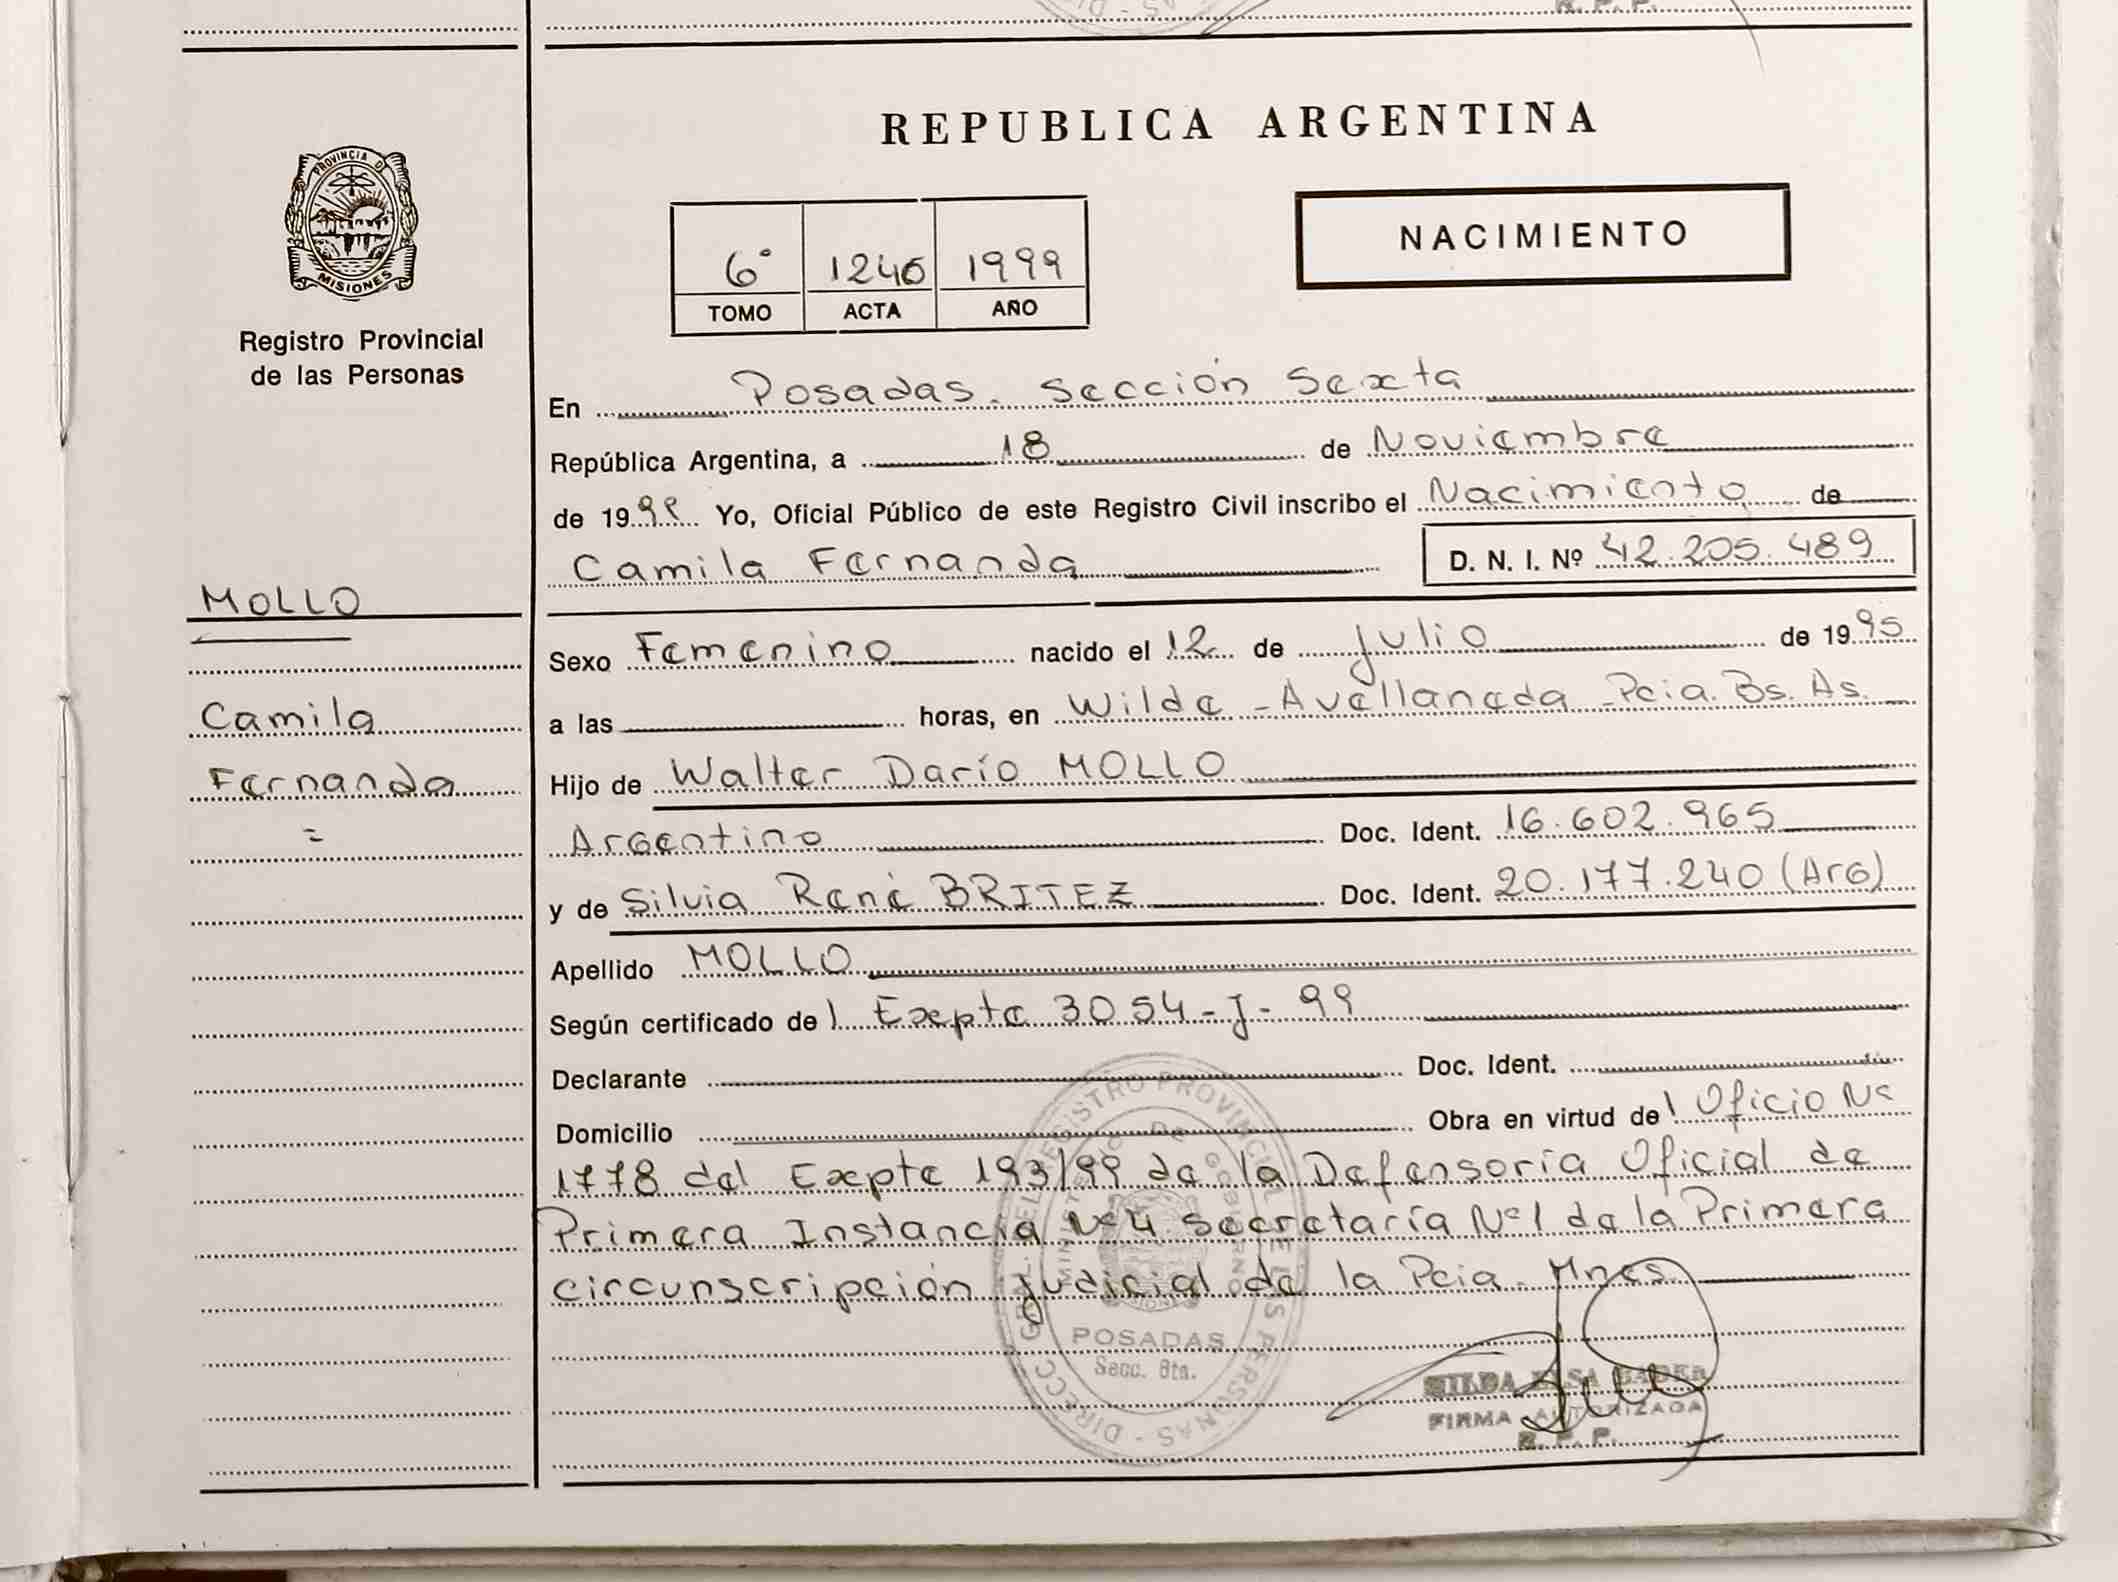 R. P. P.
REPUBLICA ARGENTINA
PROVINCIA DE
MISIONES
Registro Provincial
de las Personas
6° 1246 1999
TOMO ACTA AÑO
NACIMIENTO
En Posadas. Sección Sexta
República Argentina, a 18 de Noviembre
de 1999 Yo, Oficial Público de este Registro Civil inscribo el Nacimiento de
Camila Fernanda D. N. I. Nº 42.205.489
MOLLO
Camila
Fernanda
=
Sexo Femenino nacido el 12 de Julio de 1995
a las horas, en Wilde - Avellaneda - Pcia. Bs. As.
Hijo de Walter Darío MOLLO
Argentino Doc. Ident. 16.602.965
y de Silvia René BRITEZ Doc. Ident. 20.177.240 (Arg)
Apellido MOLLO
Según certificado de l Expte 3054-J-99
Declarante Doc. Ident.
Domicilio Obra en virtud de l Oficio Nº
1778 del Expte 193/99 de la Defensoría Oficial de
Primera Instancia Nº 4 Secretaría Nº 1 de la Primera
circunscripción Judicial de la Pcia. Mnes.
DIRECC. GRAL. DEL REGISTRO PROVINCIAL DE LAS PERSONAS
MINISTERIO DE GOBIERNO
MISIONES
POSADAS
Secc. 6ta.
HILDA ELSA
FIRMA AUTORIZADA
R. P. P.